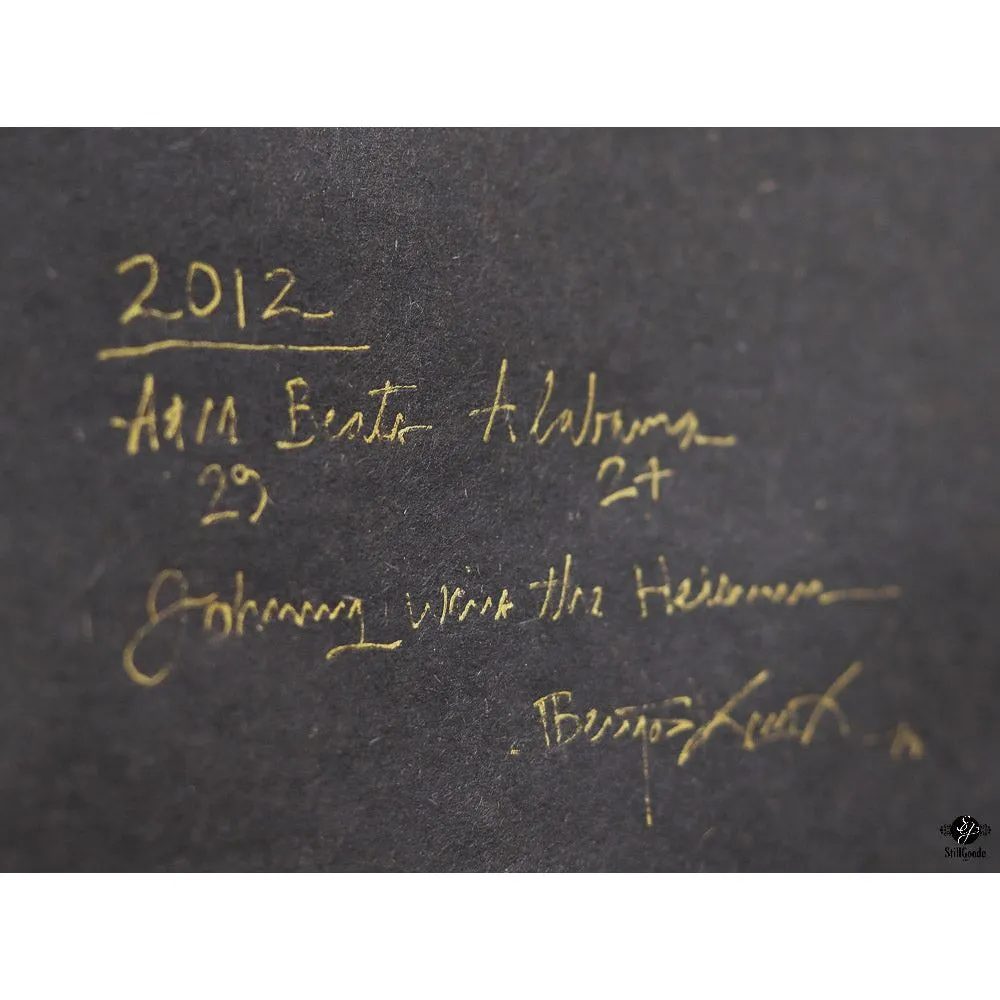 2012
A&M Beats Alabama
29 24
Johnny wins the Heisman
StillGoode